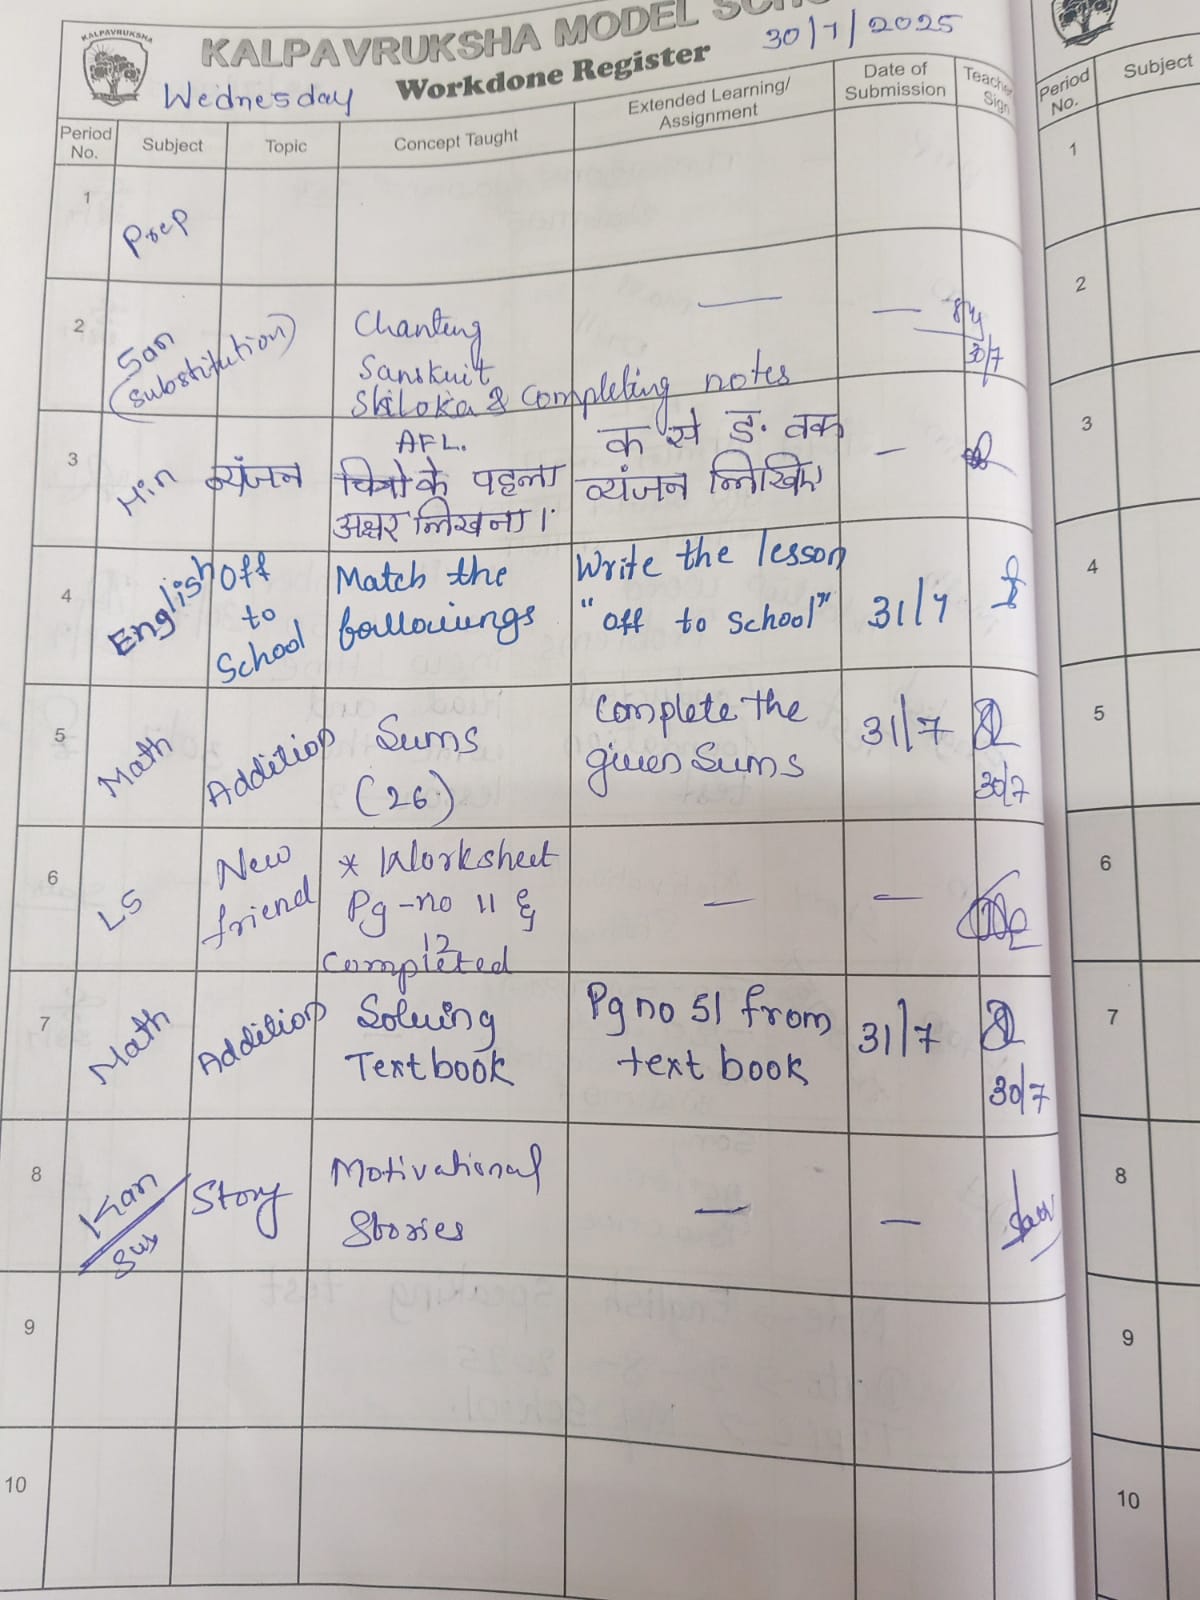 KALPAVRUKSHA
KALPAVRUKSHA MODEL SCHO
30/7/2025
Workdone Register
Wednesday
Period No. Subject Topic Concept Taught Extended Learning/ Assignment Date of Submission Teacher Sign
1 Prep
2 San (substitution) Chanting — —
Sanskrit 30/7
Shloka & completing notes
3 Hin व्यंजन AFL. क से ङ. तक —
चित्रो के पहला व्यंजन लिखिए
अक्षर लिखना।
4 English Off to School Match the Write the lesson 31/7
followings "off to school"
5 Math Addition Sums Complete the 31/7
(26) given Sums 30/7
6 LS New friend * Worksheet — —
Pg-no 11 &
12
Completed
7 Math Addition Solving Pg no 51 from 31/7
Textbook text book 30/7
8 Kan/Sus Story Motivational — —
Stories
9
10
Period No. Subject
1
2
3
4
5
6
7
8
9
10